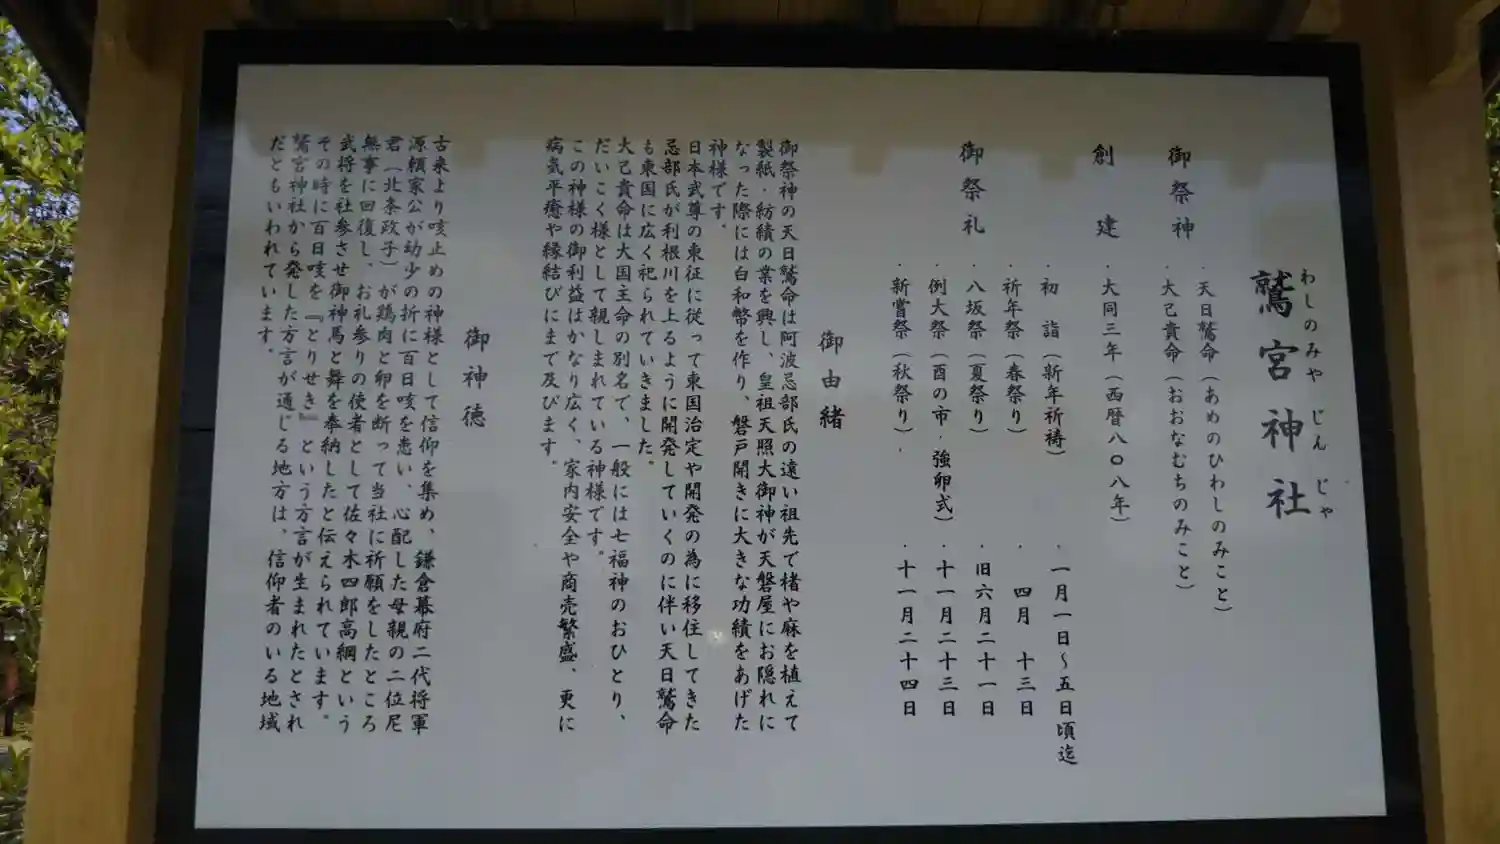 鷲宮神社
わしのみや じん じゃ
御祭神
・天日鷲命（あめのひわしのみこと）
・大己貴命（おおなむちのみこと）
創 建
・大同三年（西暦八〇八年）
御祭礼
・初 詣（新年祈祷） ・一月一日～五日頃迄
・祈年祭（春祭り） ・四月 十三日
・八坂祭（夏祭り） ・旧六月二十一日
・例大祭（酉の市・強卵式） ・十一月二十三日
・新嘗祭（秋祭り）・ ・十一月二十四日
御由緒
御祭神の天日鷲命は阿波忌部氏の遠い祖先で楮や麻を植えて
製紙・紡績の業を興し、皇祖天照大御神が天磐屋にお隠れに
なった際には白和幣を作り、磐戸開きに大きな功績をあげた
神様です。
日本武尊の東征に従って東国治定や開発の為に移住してきた
忌部氏が利根川を上るように開発していくのに伴い天日鷲命
も東国に広く祀られていきました。
大己貴命は大国主命の別名で、一般には七福神のおひとり、
だいこく様として親しまれている神様です。
この神様の御利益はかなり広く、家内安全や商売繁盛、更に
病気平癒や縁結びにまで及びます。
御神徳
古来より咳止めの神様として信仰を集め、鎌倉幕府二代将軍
源頼家公が幼少の折に百日咳を患い、心配した母親の二位尼
君（北条政子）が鶏肉と卵を断って当社に祈願をしたところ
無事に回復し、お礼参りの使者として佐々木四郎高綱という
武将を社参させ御神馬と舞を奉納したと伝えられています。
その時に百日咳を『とりせき』という方言が生まれたとされ
鷲宮神社から発した方言が通じる地方は、信仰者のいる地域
だともいわれています。